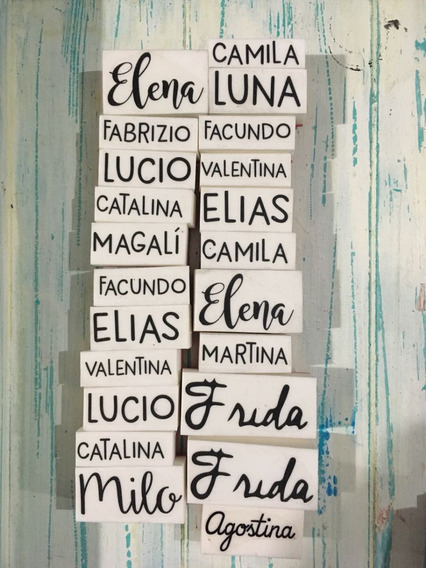 Elena
FABRIZIO
LUCIO
CATALINA
MAGALÍ
FACUNDO
ELIAS
VALENTINA
LUCIO
CATALINA
Milo
CAMILA
LUNA
FACUNDO
VALENTINA
ELIAS
CAMILA
Elena
MARTINA
Frida
Frida
Agostina